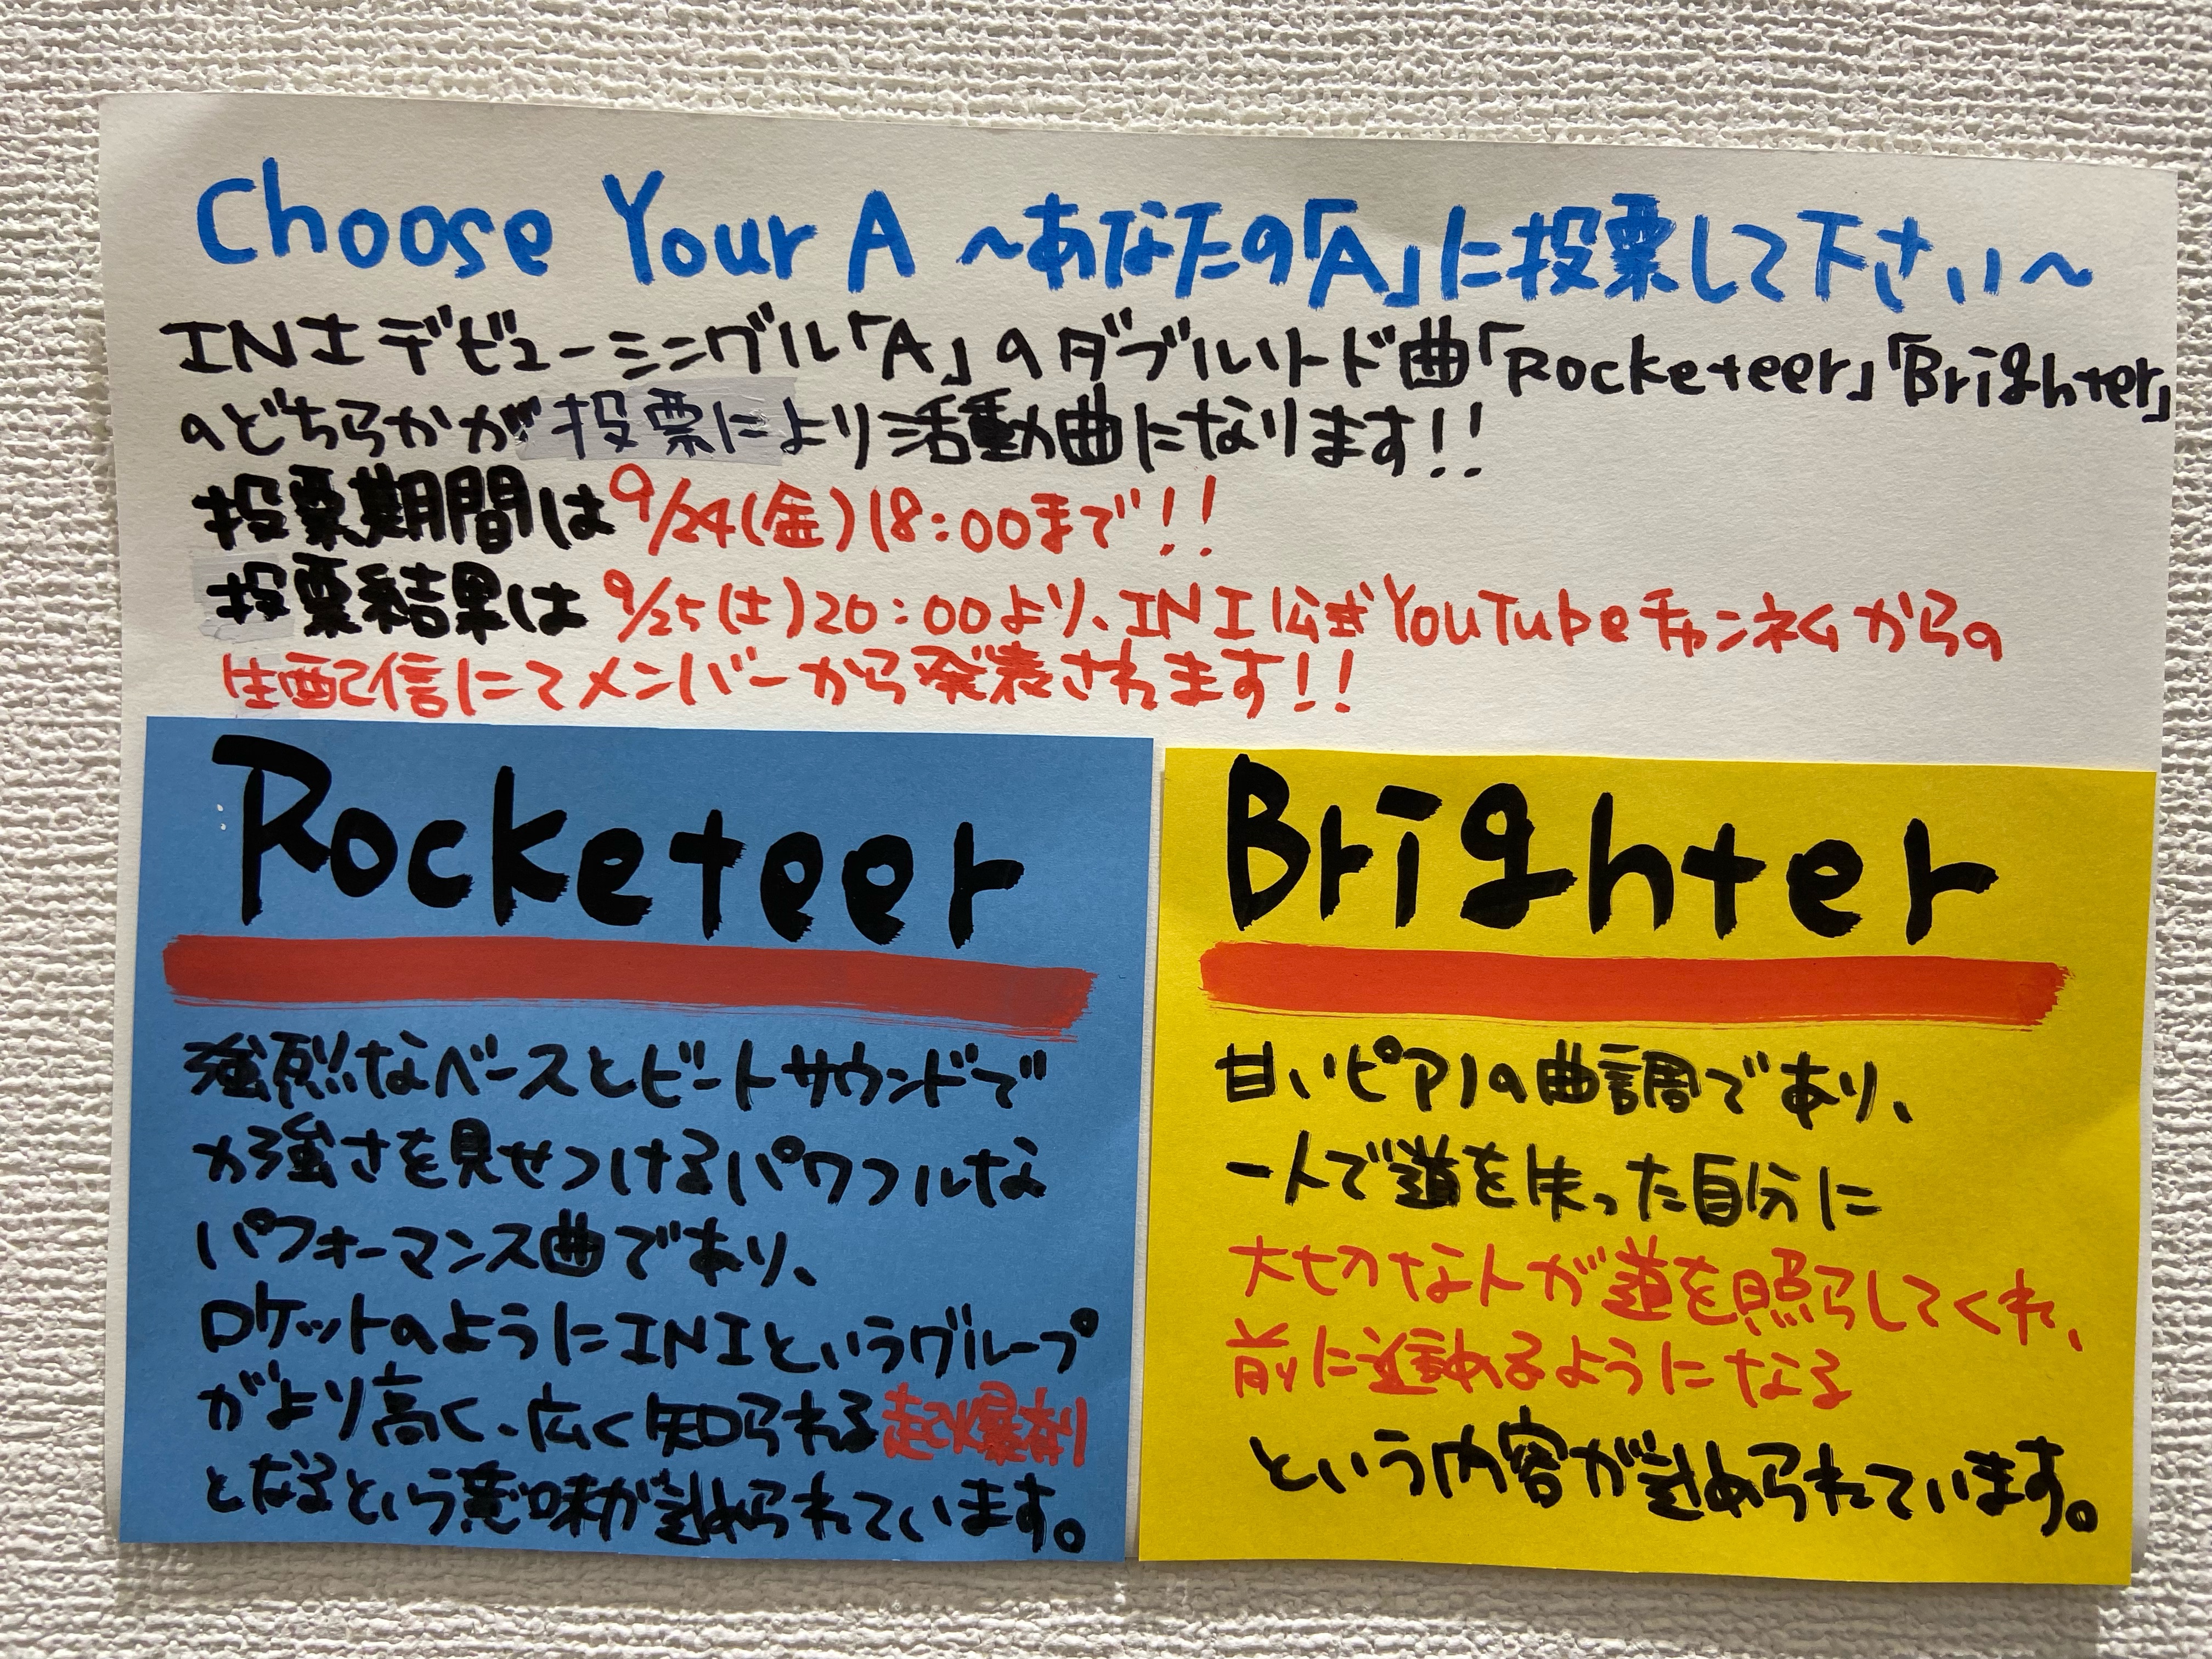 Choose Your A ～あなたの「A」に投票して下さい～
INIデビューシングル「A」のダブルリード曲「Rocketeer」「Brighter」
のどちらかが投票により活動曲になります!!
投票期間は9/24(金)18:00まで!!
投票結果は9/25(土)20:00より、INI公式YouTubeチャンネルからの
生配信にてメンバーから発表されます!!
Rocketeer
強烈なベースとビートサウンドで
力強さを見せつけるパワフルな
パフォーマンス曲であり、
ロケットのようにINIというグループ
がより高く、広く知られる起爆剤
となるという意味が込められています。
Brighter
甘いピアノの曲調であり、
一人で道を失った自分に
大切な人が道を照らしてくれ、
前に進めるようになる
という内容が込められています。